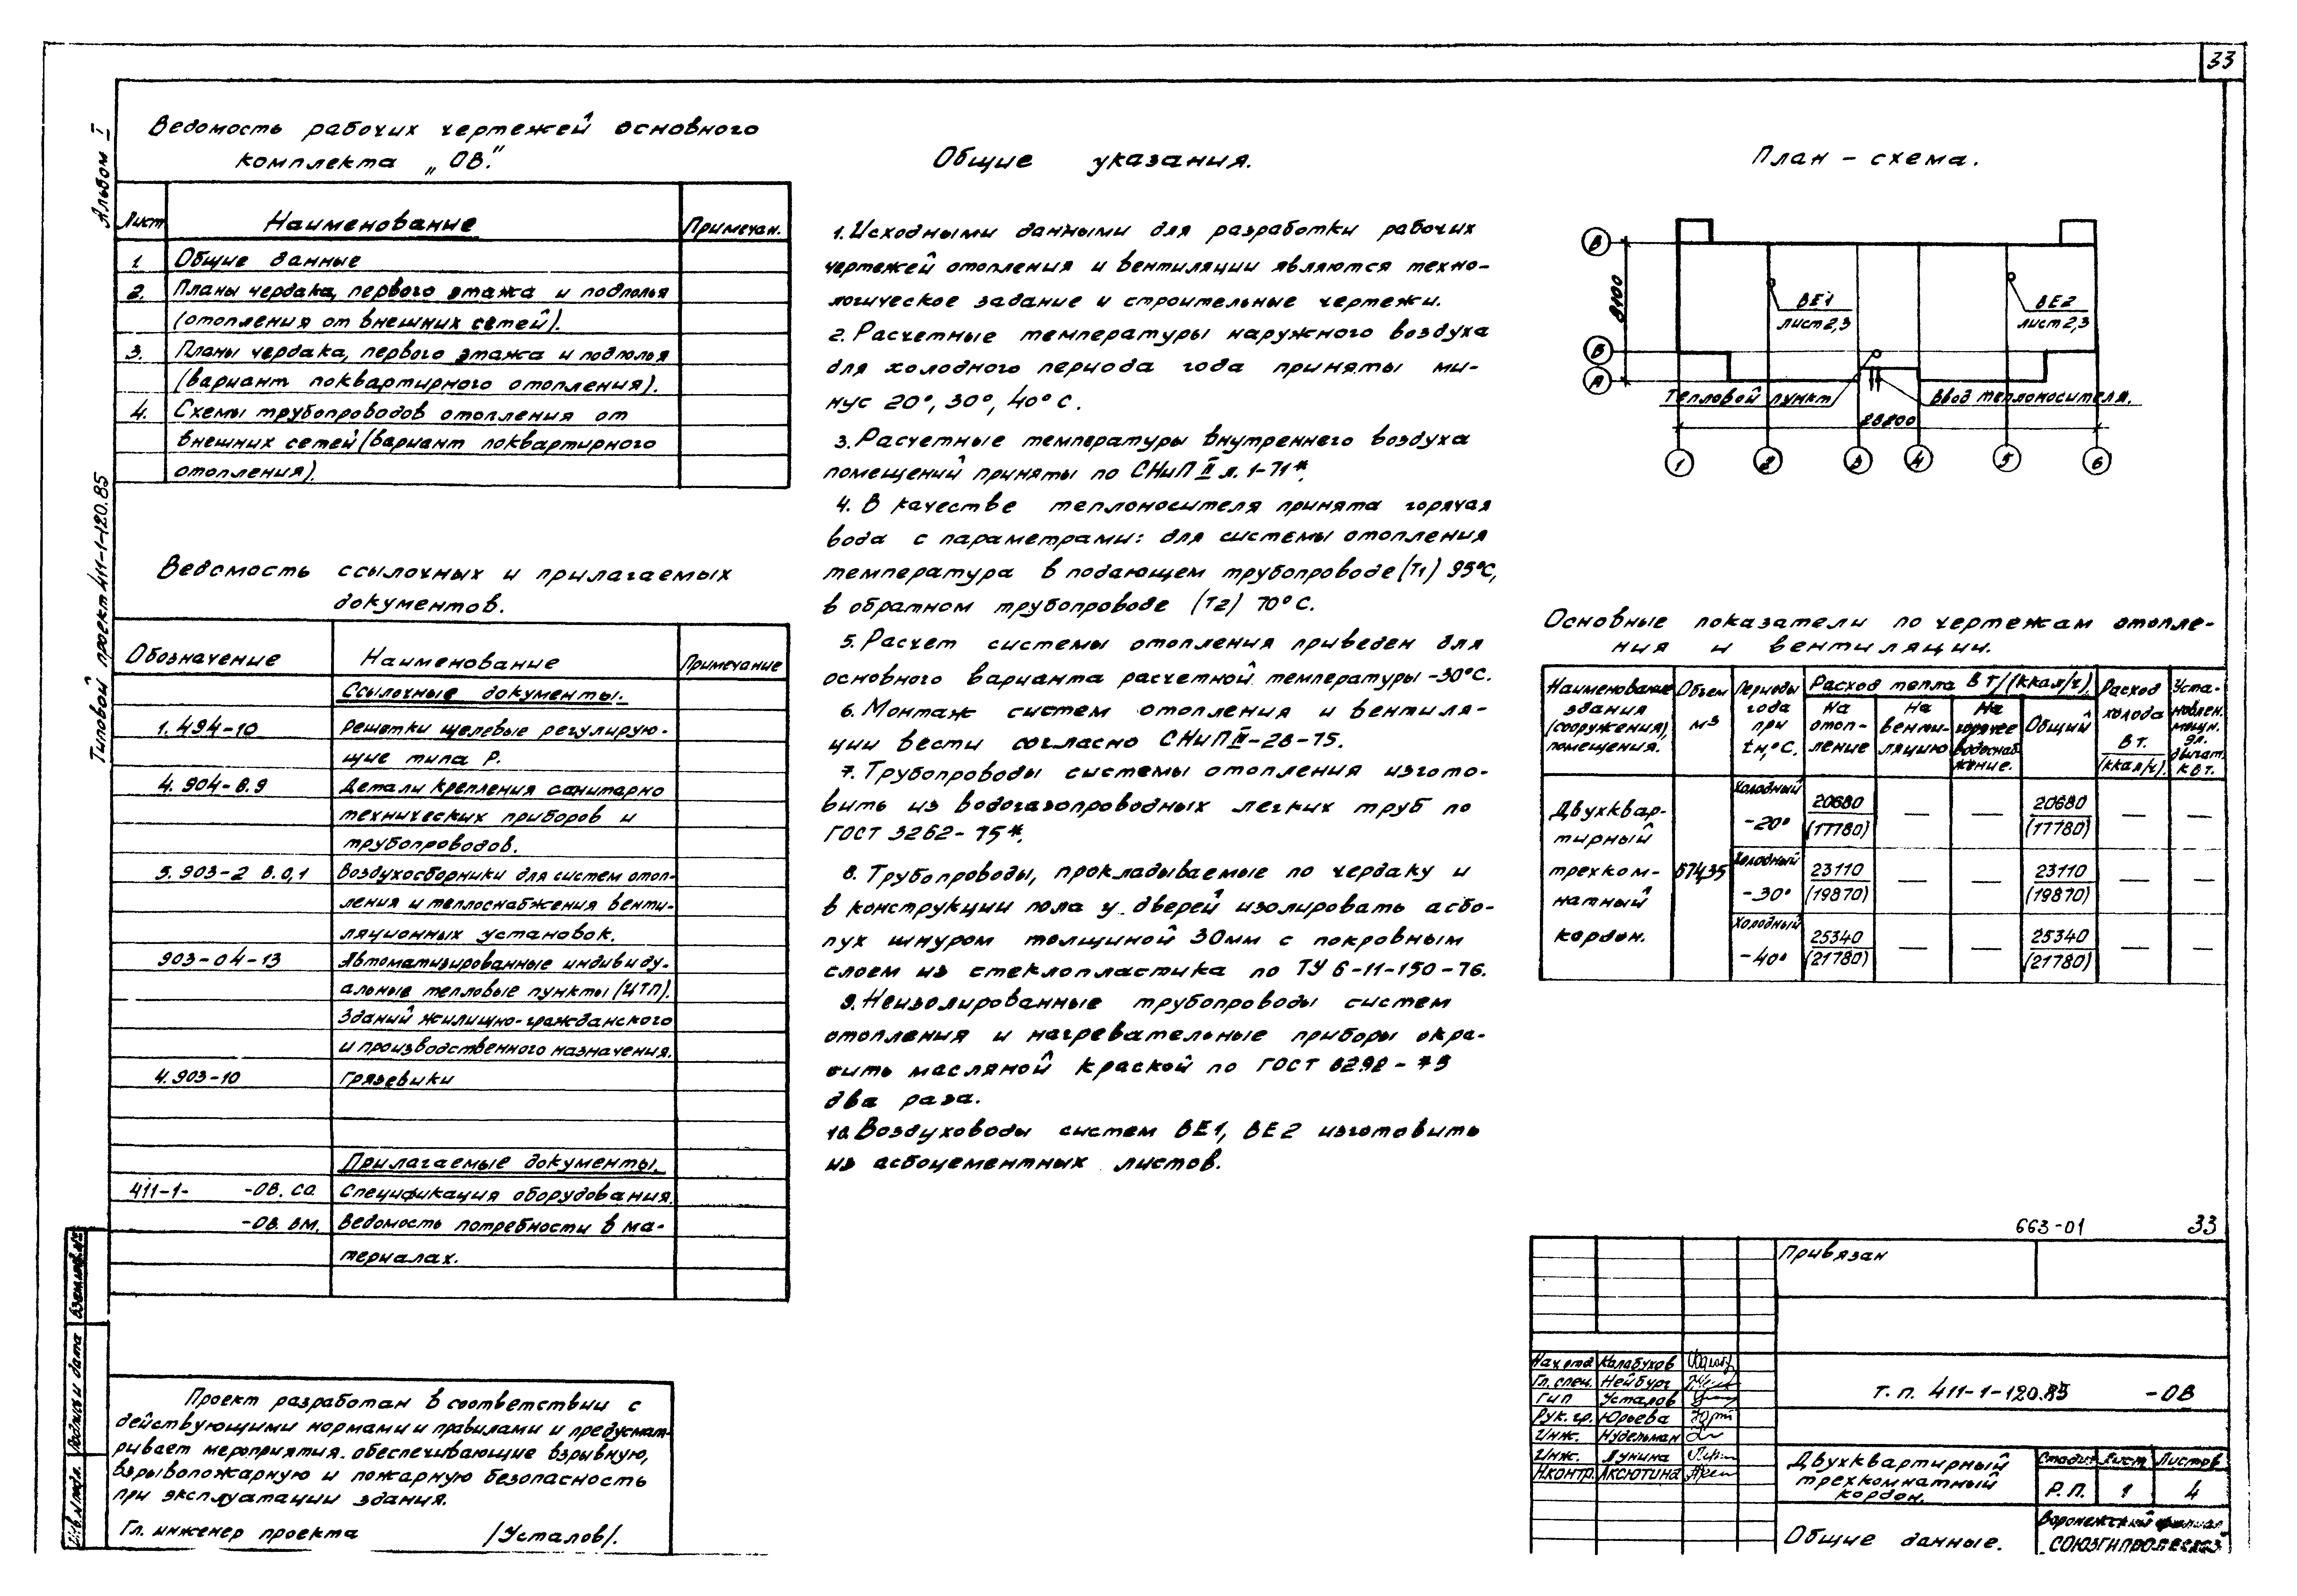 33
Альбом I
Типовой проект 411-1-120.85
Ведомость рабочих чертежей основного
комплекта „ОВ."
Лист Наименование Примечан.
1 Общие данные
2. Планы чердака, первого этажа и подполья
(отопления от внешних сетей).
3. Планы чердака, первого этажа и подполья
(вариант поквартирного отопления).
4. Схемы трубопроводов отопления от
внешних сетей (вариант поквартирного
отопления).
Ведомость ссылочных и прилагаемых
документов.
Обозначение Наименование Примечание
Ссылочные документы.
1.494-10 Решетки щелевые регулирую-
щие типа Р.
4.904-в.9 Детали крепления санитарно
технических приборов и
трубопроводов.
5.903-2 в.0,1 Воздухосборники для систем отоп-
ления и теплоснабжения венти-
ляционных установок.
903-04-13 Автоматизированные индивиду-
альные тепловые пункты (ИТП).
зданий жилищно-гражданского
и производственного назначения.
4.903-10 Грязевики
Прилагаемые документы.
411-1- -ОВ. СО. Спецификация оборудования.
-ОВ. ВМ. Ведомость потребности в ма-
териалах.
Проект разработан в соответствии с
действующими нормами и правилами и предусмат-
ривает мероприятия. обеспечивающие взрывную,
взрывопожарную и пожарную безопасность
при эксплуатации здания.
Гл. инженер проекта /Усталов/.
Взам.инв.№
Подпись и дата
Инв.№ подл.
Общие указания.
1. Исходными данными для разработки рабочих
чертежей отопления и вентиляции являются техно-
логическое задание и строительные чертежи.
2. Расчетные температуры наружного воздуха
для холодного периода года приняты ми-
нус 20°, 30°, 40°С.
3. Расчетные температуры внутреннего воздуха
помещений приняты по СНиП II л. 1-71*.
4. В качестве теплоносителя принята горячая
вода с параметрами: для системы отопления
температура в подающем трубопроводе (Т1) 95°С,
в обратном трубопроводе (Т2) 70°С.
5. Расчет системы отопления приведен для
основного варианта расчетной температуры -30°С.
6. Монтаж систем отопления и вентиля-
ции вести согласно СНиП III-28-75.
7. Трубопроводы системы отопления изгото-
вить из водогазопроводных легких труб по
ГОСТ 3262-75*.
8. Трубопроводы, прокладываемые по чердаку и
в конструкции пола у дверей изолировать асбо-
пух шнуром толщиной 30мм с покровным
слоем из стеклопластика по ТУ 6-11-150-76.
9. Неизолированные трубопроводы систем
отопления и нагревательные приборы окра-
сить масляной краской по ГОСТ 8292-75
два раза.
10. Воздуховоды систем ВЕ1, ВЕ2 изготовить
из асбоцементных листов.
План - схема.
В
Б
А
8100
ВЕ1
лист 2,3
ВЕ2
лист 2,3
Тепловой пункт
Ввод теплоносителя.
28800
1 2 3 4 5 6
Основные показатели по чертежам отопле-
ния и вентиляции.
Наименование здания (сооружения), помещения. Объем м3 Периоды года при tн,°С. Расход тепла Вт/(ккал/ч) Расход холода Вт. (ккал/ч). Уста-новлен. мощн. эл. двигат. кВт.
На отоп-ление На венти-ляцию На горячее водоснаб-жение. Общий
Двухквар-
тирный
трехком-
натный
кордон.
574,35
Холодный -20° 20680 (17780) — — 20680 (17780) — —
Холодный -30° 23110 (19870) — — 23110 (19870) — —
Холодный -40° 25340 (21780) — — 25340 (21780) — —
663-01 33
Привязан
Нач.отд Калабухов
Гл.спец. Нейбург
ГИП Усталов
Рук.гр. Юрьева
Инж. Нудельман
Инж. Лунина
Н.контр. Аксютина
Т. п. 411-1-120.85 -ОВ
Двухквартирный
трехкомнатный
кордон.
Стадия Лист Листов
Р.П. 1 4
Общие данные.
Воронежский филиал
СОЮЗГИПРОЛЕСХОЗ